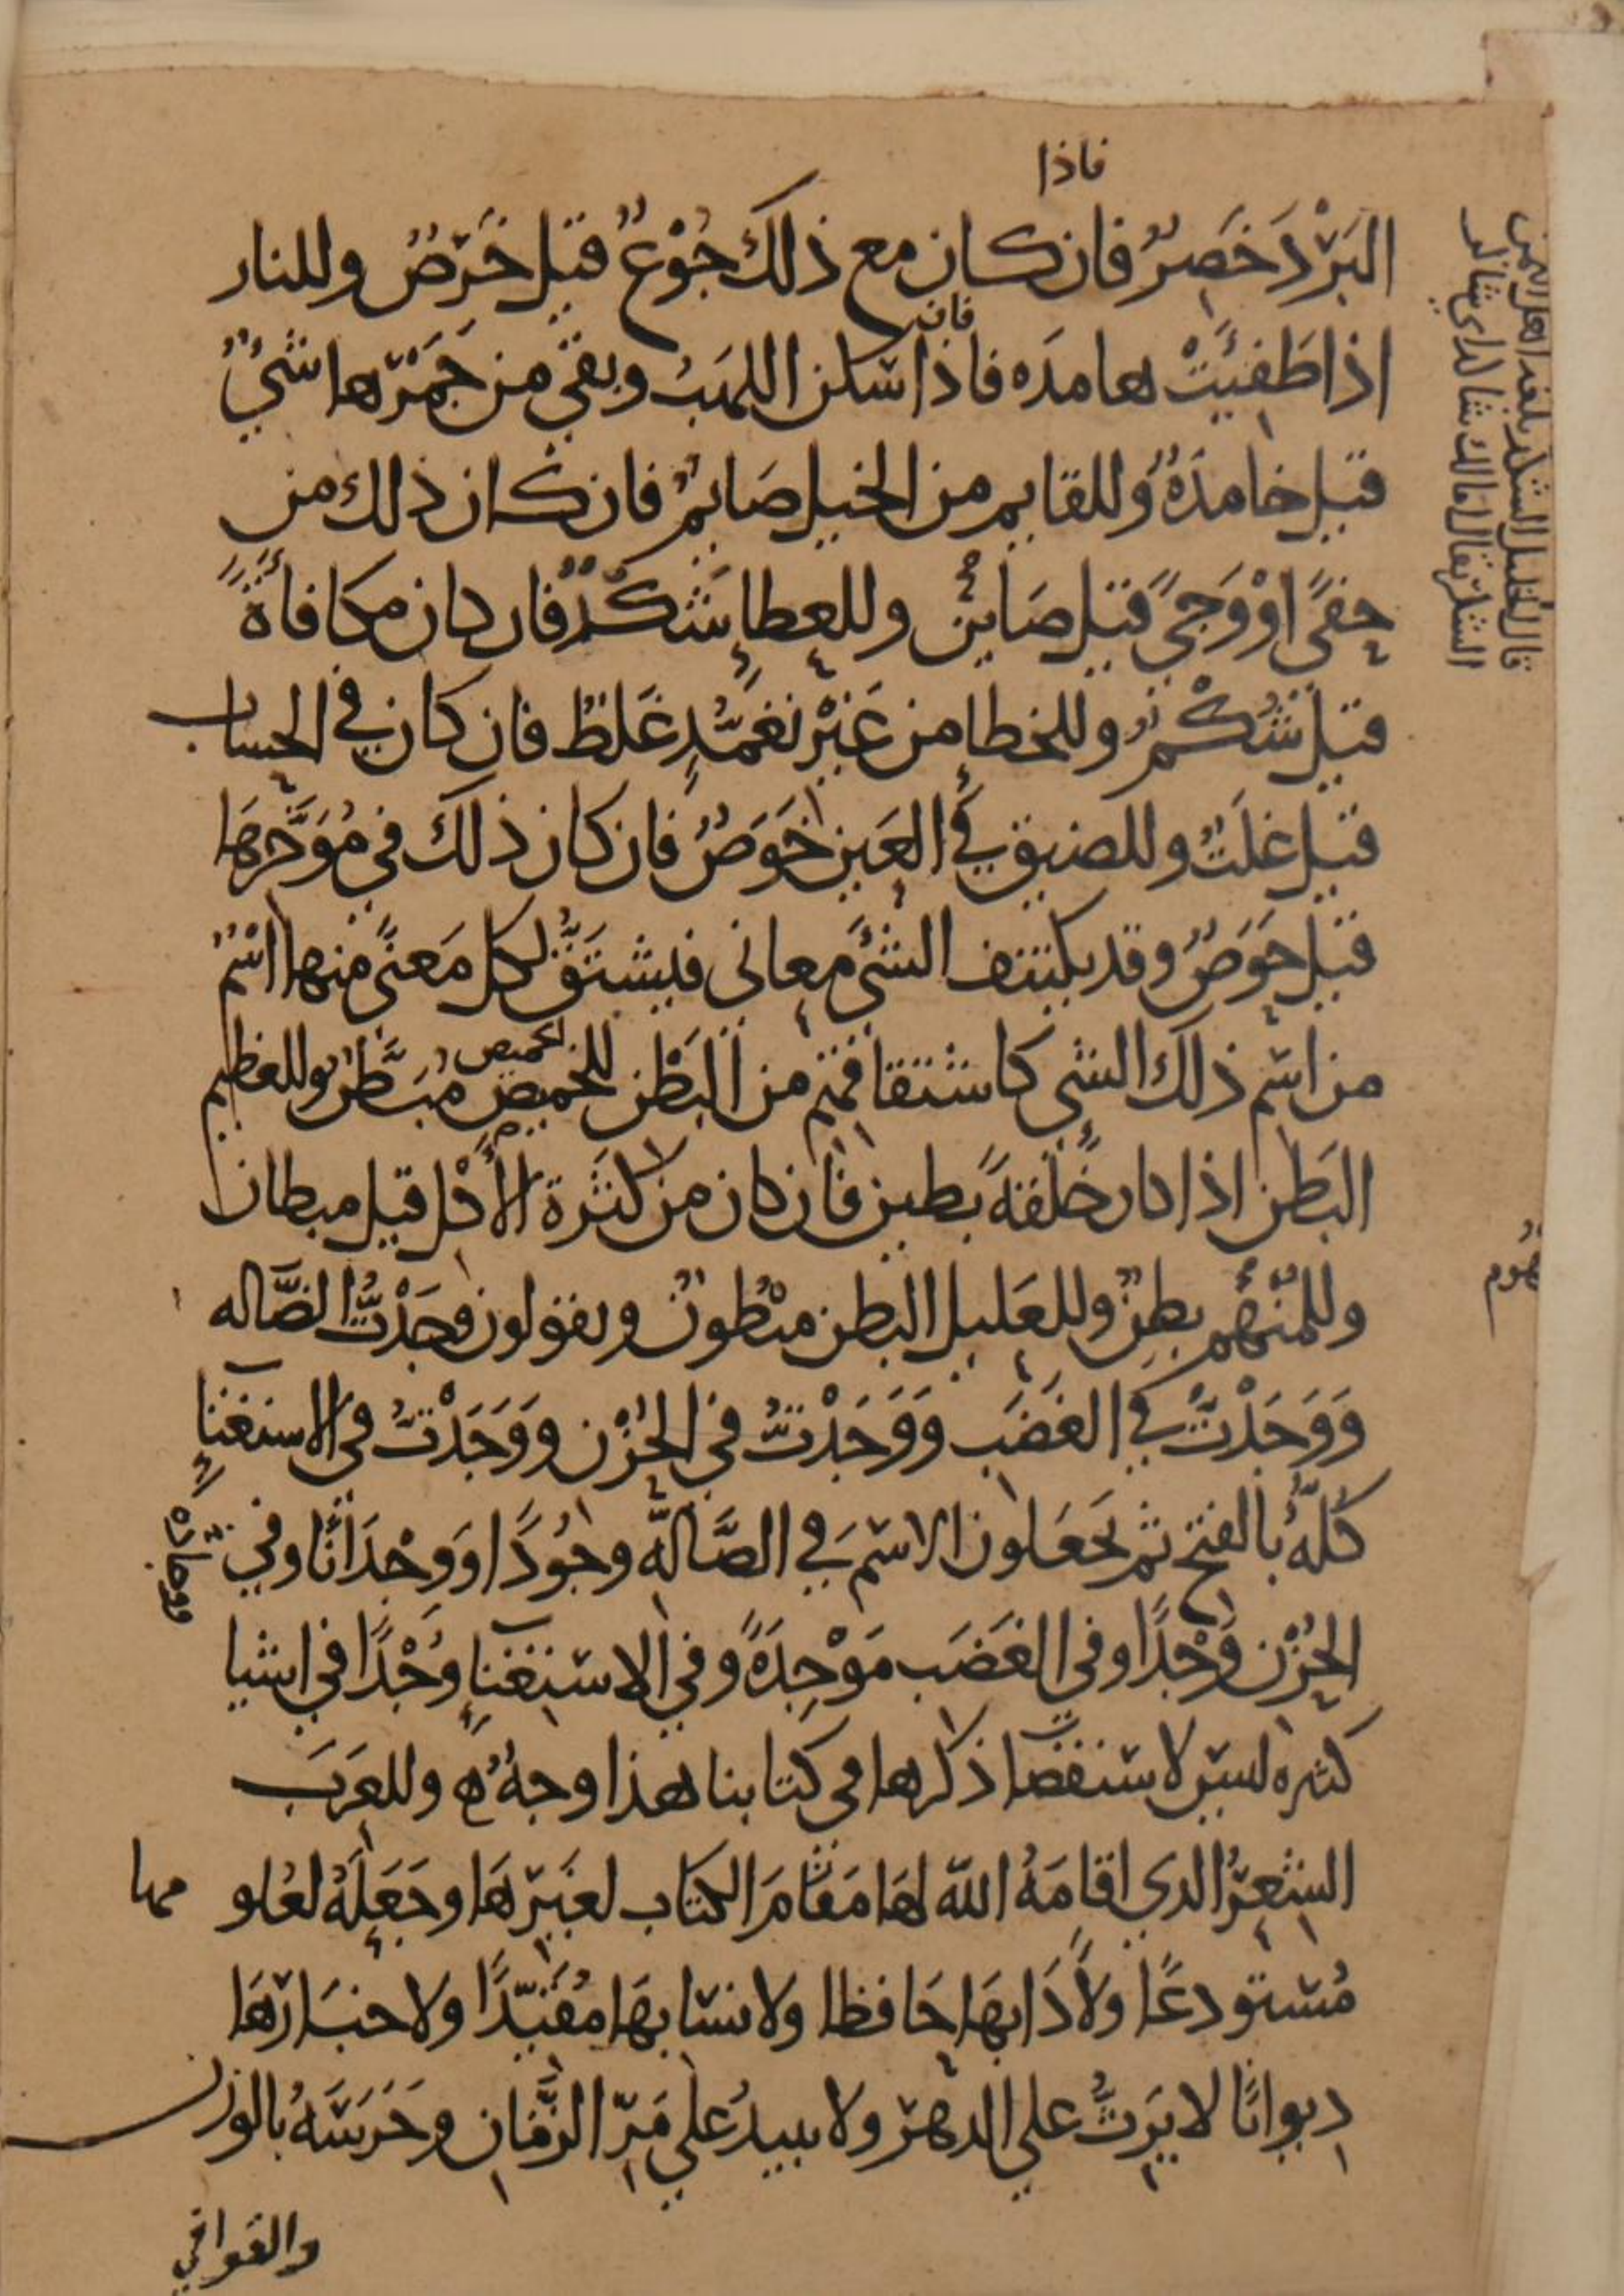 فاذا
البَرْدَ خَصِرٌ فان كان مع ذلك جُوْعٌ قيل خَرِصٌ وللنار
اذا طَفِئَتْ هامدَه فاذا سَكن اللهَبُ وبقيَ من جَمْرها شيْءٌ
فان
قيل خامدَةٌ وللقايم من الخيل صَايِمٌ فان كان ذلك من
حفًى اوْ وَجًى قيل صَاين وللعطاءِ شُكْدٌ فان كان مكافاةً
قيل شُكْمٌ وللخطاءِ من غَيْر تَعَمُّدٍ غَلَطٌ فان كان في الحساب
قيل غلَتٌ وللضيق في العَين خَوَصٌ فان كان ذلك في مُؤَخَّرهَا
قيل حَوَصٌ وقد يكتنف الشيَ معاني فيُشتَقُّ لكل مَعنًى منها اسْمٌ
من اسْم ذلك الشي كاشتقاقهم من البَطْن للخميص مُبَطَّنٌ وللعظيم
لخميص
البَطن اذا كان خلقةً بَطين فان كان من كثرة الأكل قيل مبطان
وللمنهُوم بطِنٌ وللعَليل البطن مبْطُونٌ ويقولون وجَدْتُ الضَّاله
هُوم
وَوَجَدْتُ في الغَضَب وَوَجَدْتُ في الحُزْن ووَجَدْتُ في الاستغناءِ
كلّهُ بالفتح ثم يجعَلون الاسْمَ في الضَّالّه وجُودًا وَوِجْدَانًا وفي
الحُزْن وَجْدًا وفي الغَضَب مَوْجِدَةً وفي الاسْتغناءِ وُجْدًا في اشيا
كثيره ليسَ لاستقصاء ذكرها في كتابنا هذا وجهٌ وللعَرَب
الشِعرُ الذي اقامَهُ اللّه لهَا مَقامَ الكتاب لغَيْرهَا وجَعَلهُ لعُلو
مها
مُستودعًا ولأدَابهَا حَافظا ولانسَابهَا مُقيّدًا ولاخبَارهَا
ديوانًا لا يَرِثُّ على الدهر ولا يبيدُ على مَرّ الزَّمَان وحَرَسَهُ بالوزن
والقوافي
قال الخليل الشكد بلغة اهل اليمن